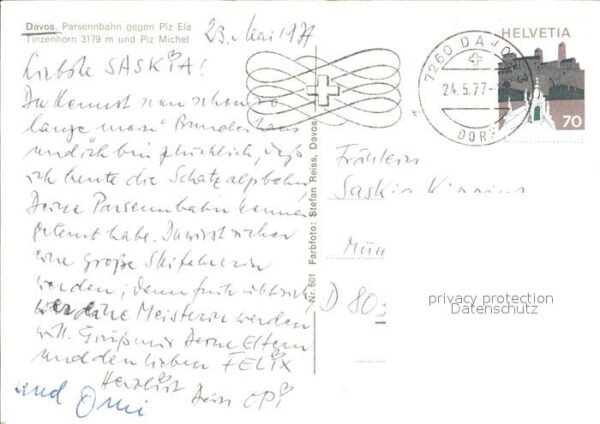 Davos. Parsennbahn gegen Piz Ela
Tinzenhorn 3179 m und Piz Michel
23. Mai 1977
Liebste SASKIA!
Du kennst nun schon so
lange "mosi" Brunderhaus
und ich bin glücklich, daß
ich heute die Schatzalpbahn,
Deine Parsennbahn kennen
gelernt habe. Du wirst sicher
eine große Skifahrerin
werden; denn früh übt sich,
wer eine Meisterin werden
will. Grüß mir Deine Eltern
und den lieben FELIX
Herzlichst Dein OPI
und Omi
Nr. 601 Farbfoto: Stefan Reiss, Davos
7260 DAVOS
24.5.77
DORF
HELVETIA
70
Fräulein
Saskia
Mün
D 80
privacy protection
Datenschutz